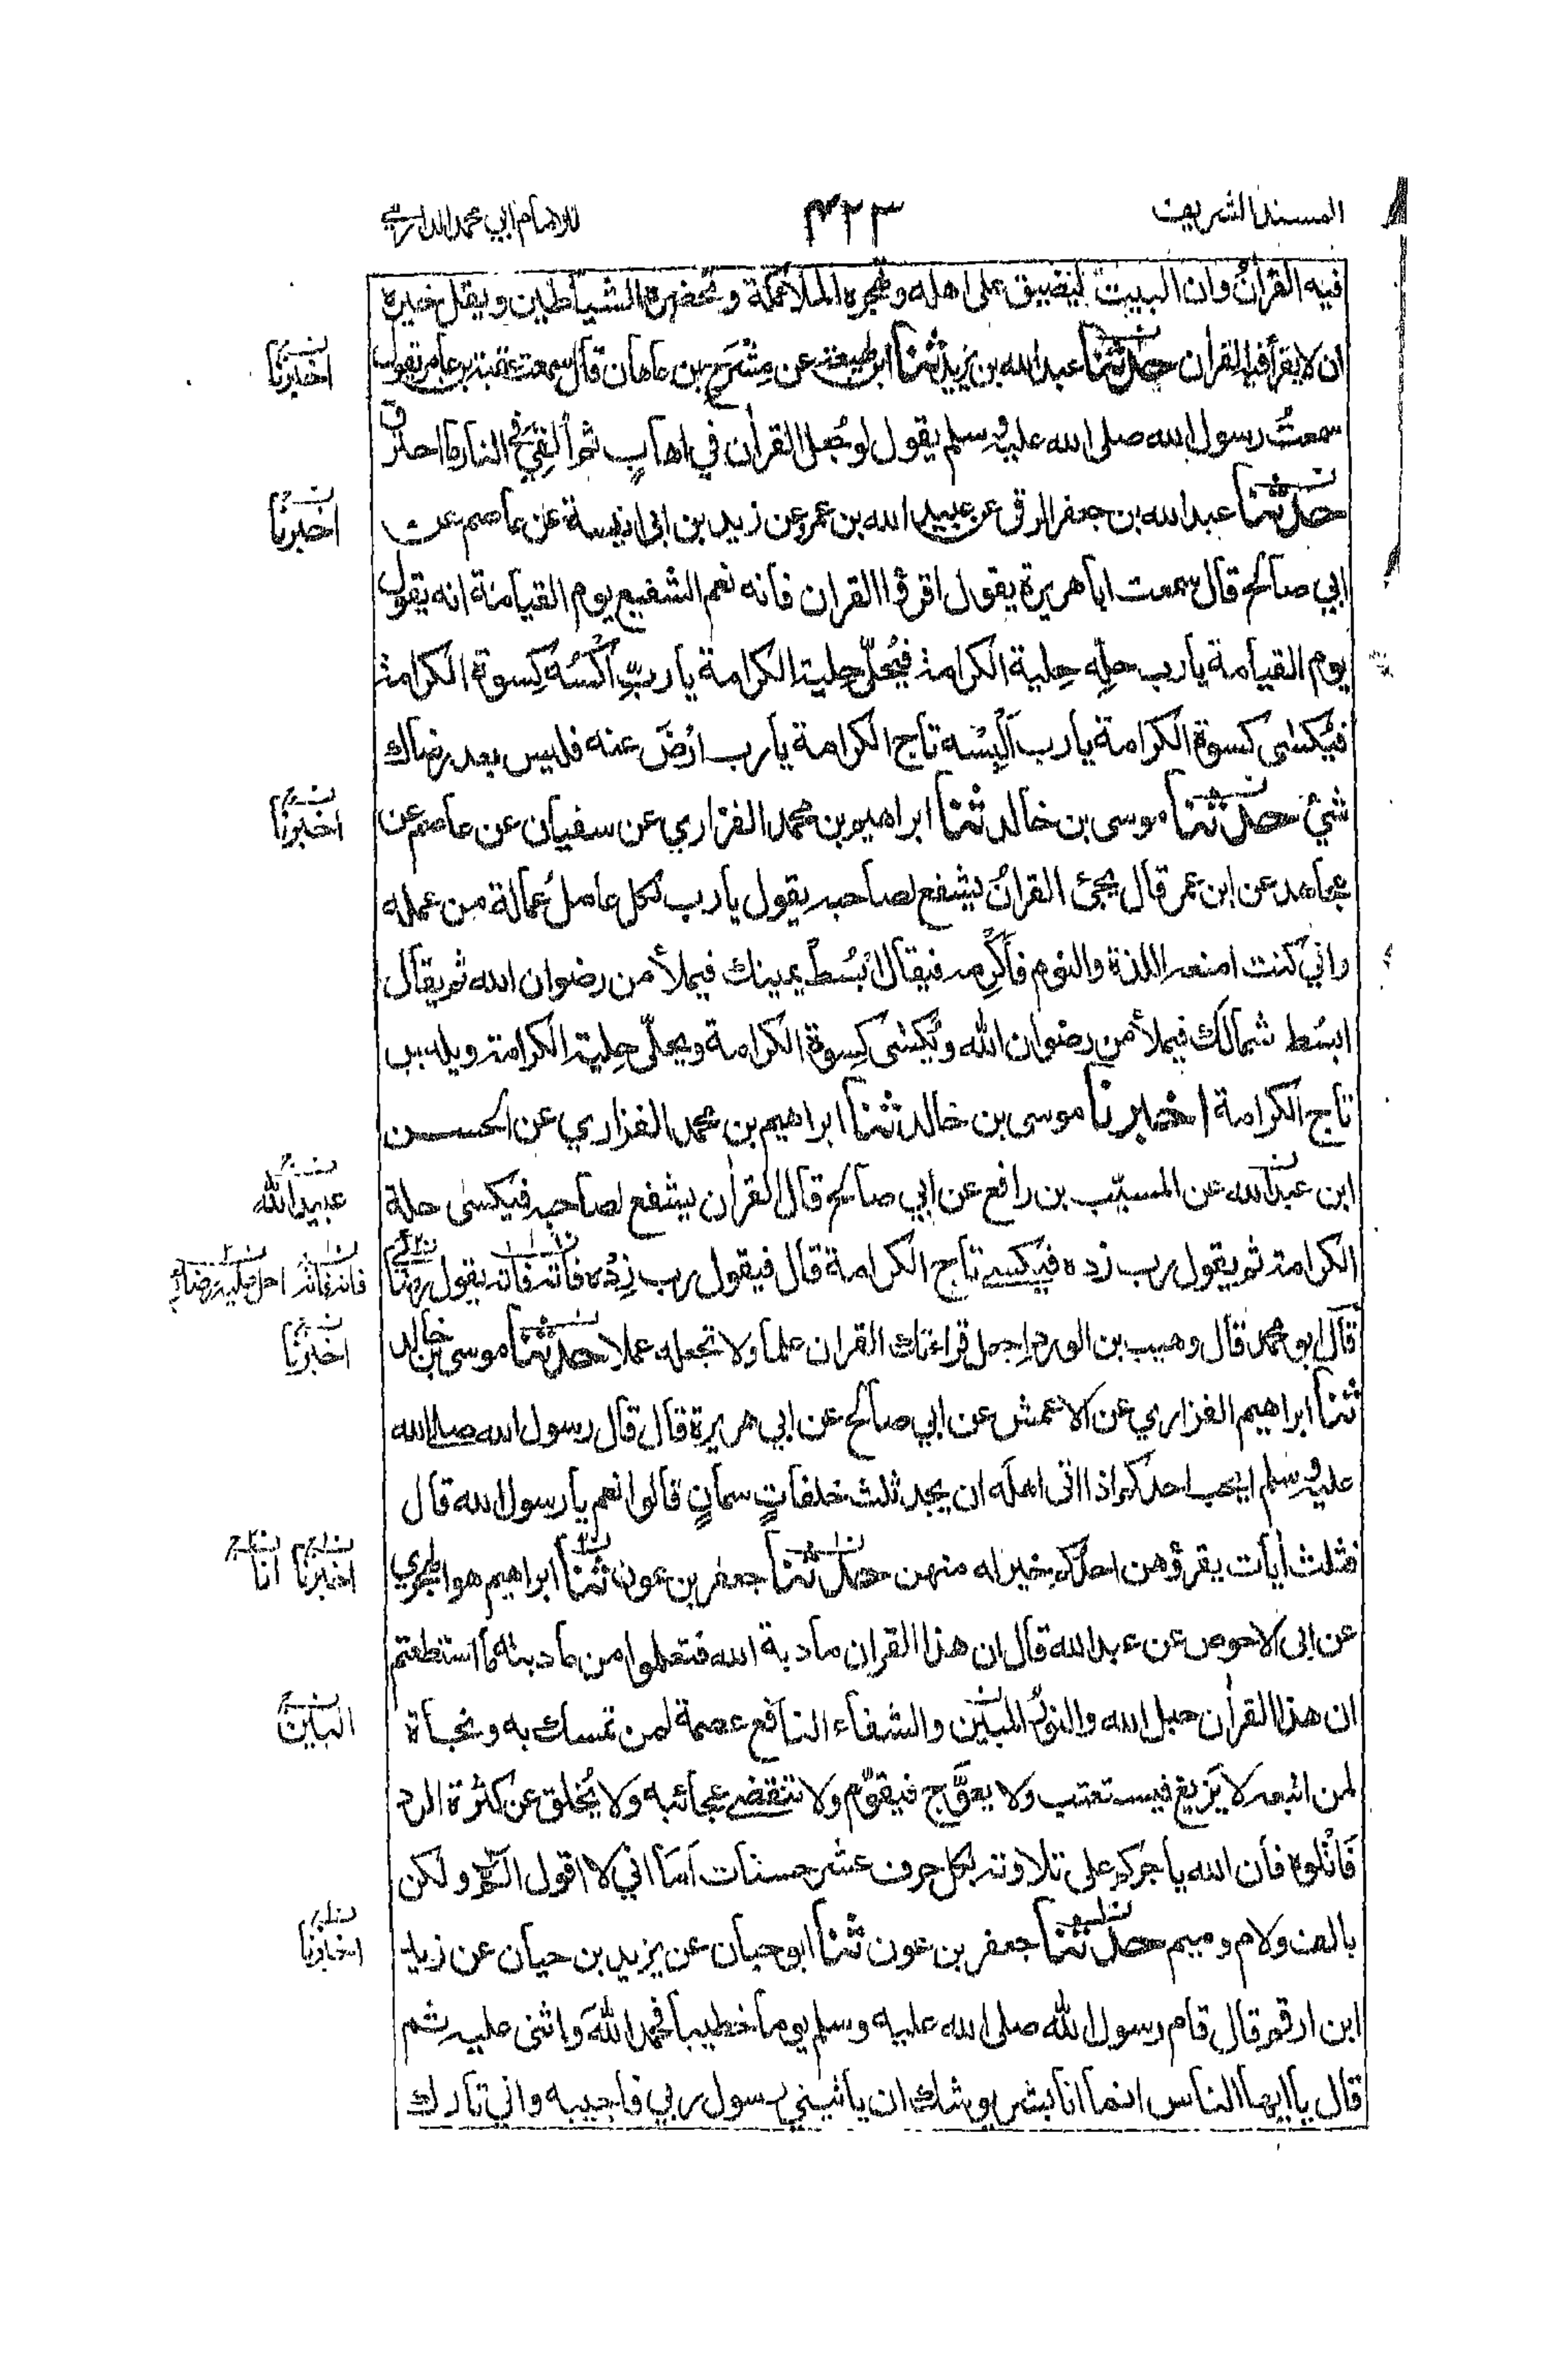 المسند الشريف
٤٢٣
للامام ابي محمد الدارمي
فيه القرانُ وان البيت ليضيق على اهله وتهجره الملائكة وتحضره الشياطين ويقل خيره
ان لا يقرأ فيه القران حدثنا عبد الله بن يزيد ثنا ابن لهيعة عن مِشْرَح بن هاهان قال سمعت عقبة بن عامر يقول
اخبرنا
سمعتُ رسول الله صلى الله عليه وسلم يقول لو جُعل القراٰن في اهابٍ ثم اُلقِيَ في النار ما احترق
حدثنا عبد الله بن جعفر الرقي عن عبيد الله بن عمرو عن زيد بن ابي انيسة عن عاصم عن
اخبرنا
ابي صالح قال سمعت ابا هريرة يقول اقرؤا القران فانه نعم الشفيع يوم القيامة انه يقول
يوم القيامة يا رب حلِّه حِلية الكرامة فيُحلّى حِلية الكرامة يا ربِّ اُكْسُه كِسوة الكرامة
فيُكسٰى كسوة الكرامة يا رب اَلْبِسْه تاج الكرامة يا رب ارْضَ عنه فليس بعد رضاك
شئ حدثنا موسى بن خالد ثنا ابراهيم بن محمد الفزاري عن سفيان عن عاصم عن
اخبرنا
مجاهد عن ابن عمر قال يجئ القرانُ يشفع لصاحبه يقول يا رب لكل عاملٍ عُمالة من عمله
واني كنت امنعه اللذة والنوم فاَكْرِمه فيقال اُبْسُطْ يمينك فيملأ من رضوان الله ثم يقال
ابسُط شمالك فيملأ من رضوان الله ويُكسٰى كِسوة الكرامة ويحلّى حِلية الكرامة ويلبس
تاج الكرامة اخبرنا موسى بن خالد ثنا ابراهيم بن محمد الفزاري عن الحسن
ابن عبد الله عن المسيّب بن رافع عن ابي صالح قال القراٰن يشفع لصاحبه فيكسٰى حلة
عبيد الله
الكرامة ثم يقول رب زده فيكسى تاج الكرامة قال فيقول رب زِدْه فاٰته فاٰته يقول رضائي
فانه فانه
قال ابو محمد قال وهيب بن الورد اجعل قراءتك القران علما ولا تجعله عملا حدثنا موسى بن خالد
اخبرنا
ثنا ابراهيم الفزاري عن الاعمش عن ابي صالح عن ابي هريرة قال قال رسول الله صلى الله
عليه وسلم ايحب احدكم اذا اتى اهلَه ان يجد ثلث خلفاتٍ سمانٍ قالوا نعم يا رسول الله قال
فثلث اٰيات يقرؤهن احدكم خير له منهن حدثنا جعفر بن عون ثنا ابراهيم هو الهجري
اخبرنا انا
عن ابي الاحوص عن عبد الله قال ان هذا القران مادبة الله فتعلموا من مادبته ما استطعتم
ان هذا القراٰن حبل الله والنورُ المبين والشفاء النافع عصمة لمن تمسك به ونجاة
البين
لمن اتبعه لا يَزيغ فيستعتب ولا يعوَّج فيقوّم ولا تنقضي عجائبه ولا يُخلق عن كثرة الرد
فَاتْلوه فان الله ياجركم على تلاوته بكل حرف عشر حسنات اَما اني لا اقول الٓمّ ولكن
بالف ولام وميم حدثنا جعفر بن عون ثنا ابو حيان عن يزيد بن حيان عن زيد
اخبرنا
ابن ارقم قال قام رسول الله صلى الله عليه وسلم يوما خطيبا فحمد اللهَ واثنى عليه ثم
قال يا ايها الناس انما انا بشر يوشك ان ياتيني رسول ربي فاجيبه واني تارك